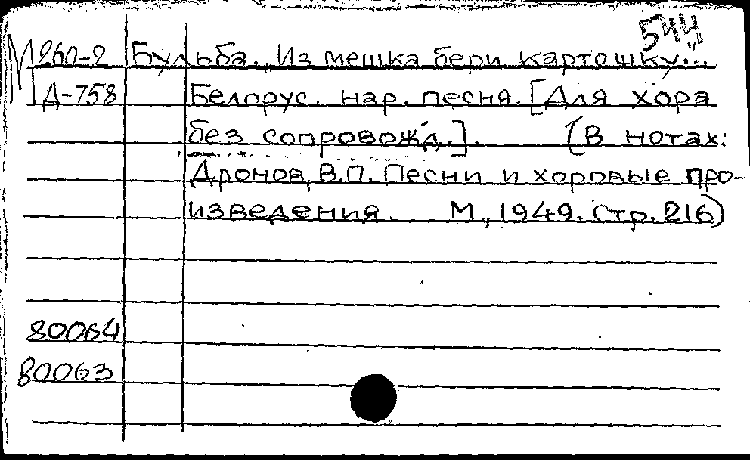 544
М 260-2 Бульба. Из мешка бери картошку...
Д-758 Белорус. нар. песня. [Для хора
без сопровожд.]. (В нотах:
Дронов, В.П. Песни и хоровые про-
изведения... М., 1949. Стр. 216)
80064
80063